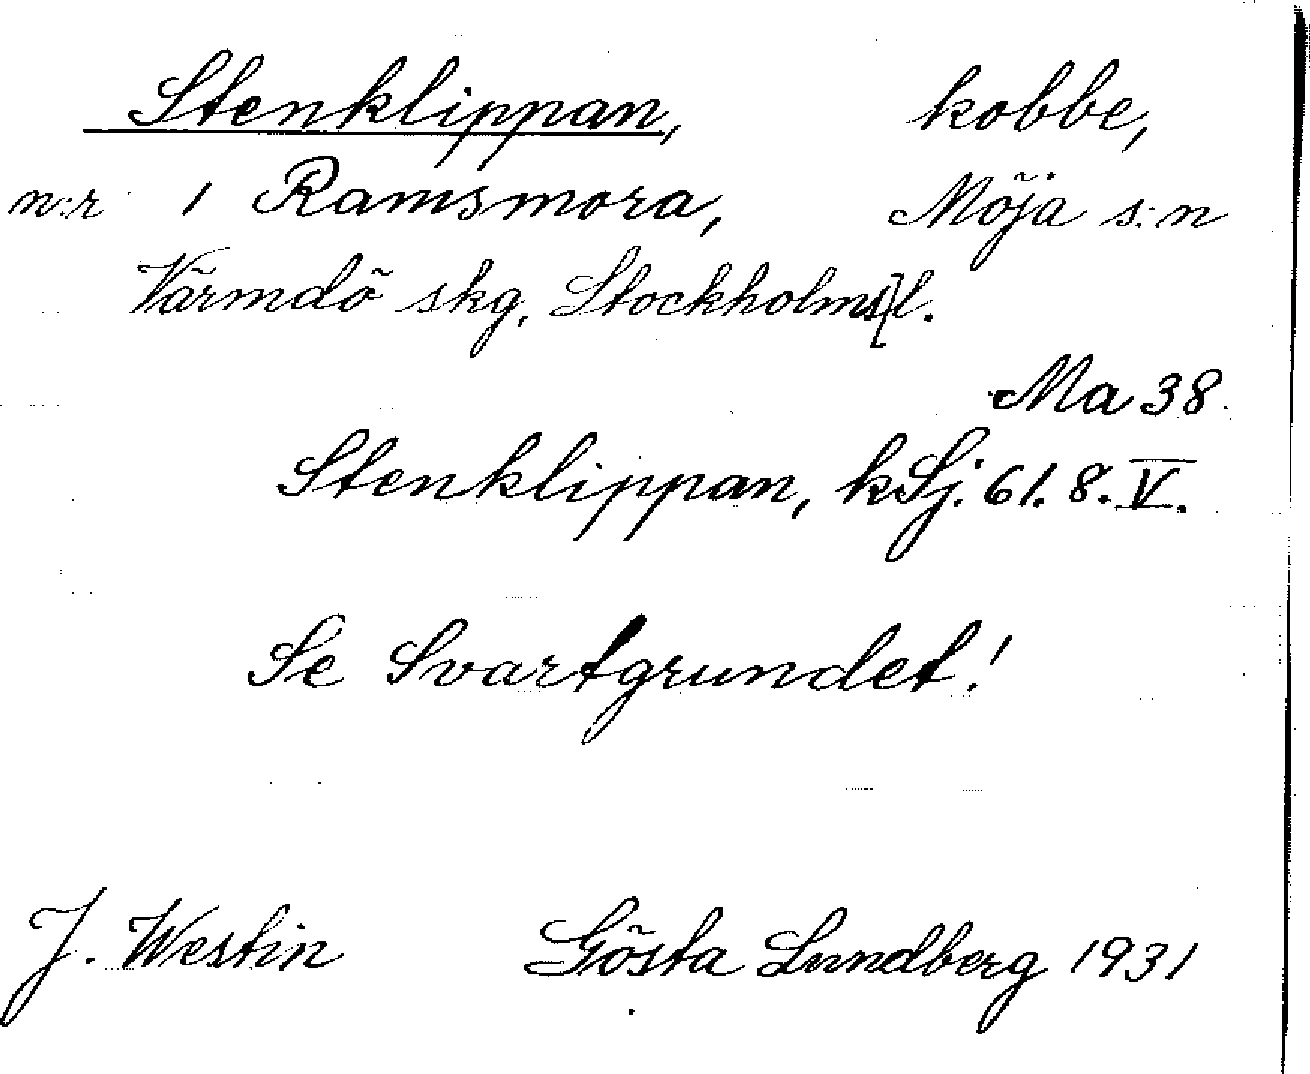 Stenklippan, kobbe,
n:r 1 Ramsmora, Möja s:n
Värmdö skg, Stockholms l.
Ma 38
Stenklippan, k Sj. 61. 8. V.
Se Svartgrundet!
J. Westin Gösta Lundberg 1931